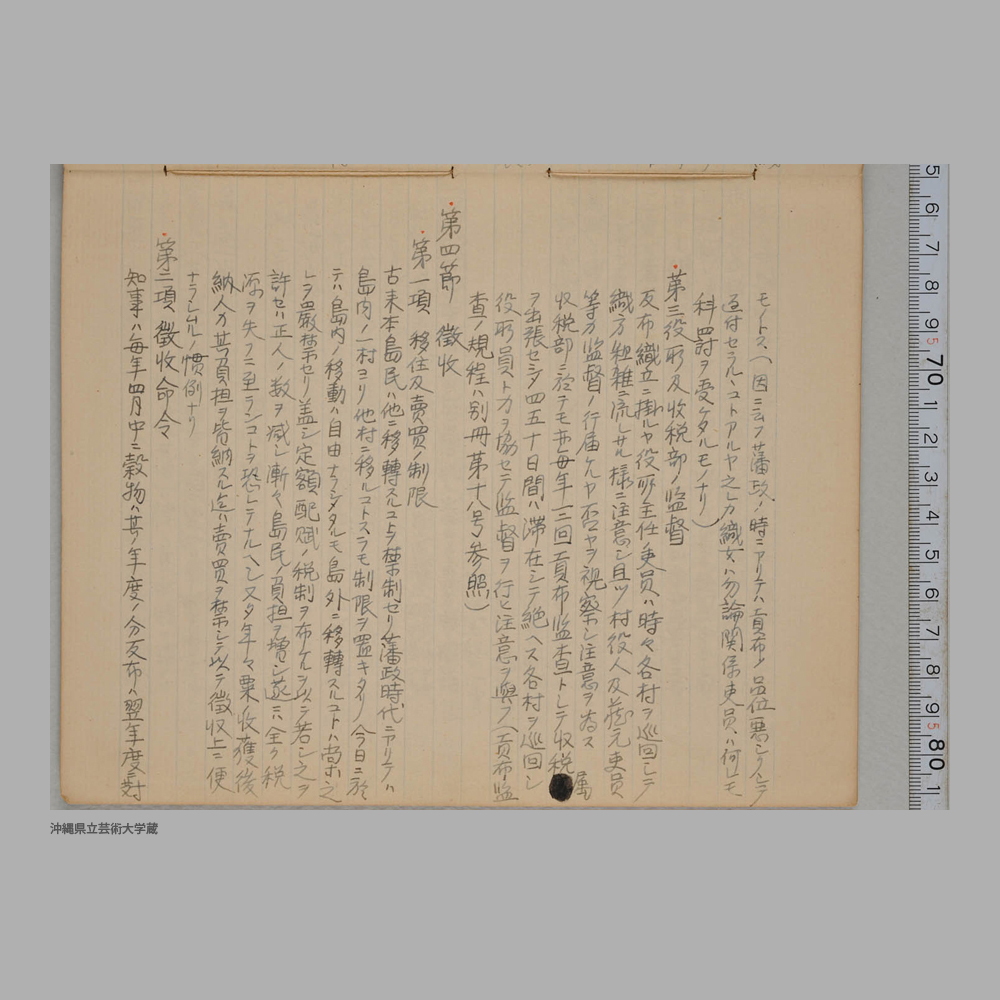 モノトス（因ニ云フ藩政ノ時ニアリテハ貢布ノ品位悪シクシテ
返付セラルヽコトアルヤ之レカ織女ハ勿論関係吏員ハ何レモ
科罰ヲ受ケタルモノナリ）
第三役所及收税部ノ監督
反布織立ニ掛ルヤ役所主任ノ吏員ハ時々各村ヲ巡回シテ
織方粗雑ニ流レサル様ニ注意シ且ツ村役人及蔵元吏員
等カ監督ノ行届ケルヤ否ヤヲ視察シ注意ヲ為ス
収税部ニ於テモ亦毎年二三回貢布監査トシテ収税属
ヲ出張セシメ四五十日間ハ滞在シテ絶ヘス各村ヲ巡回シ
役所員ト力ヲ協セテ監督ヲ行ヒ注意ヲ與フ（貢布監
査ノ規程ハ別冊第十八号参照）
第四節　徴收
第一項　移住及賣買ノ制限
古来本島民ハ他ニ移轉スルコトヲ禁制セリ藩政時代ニアリテハ
島内ノ一村ヨリ他村ニ移ルコトスラモ制限ヲ置キタリ今日ニ於
テハ島内ノ移動ハ自由ナラシメタルモ島外ニ移轉スルコトハ尚ホ之
レヲ嚴禁セリ蓋シ定額配賦ノ税制ヲ布ケルヲ以テ若シ之ヲ
許セハ正人ノ数ヲ減シ漸々島民ノ負担ヲ増シ遂ニハ全ク税
源ヲ失フニ至ランコトヲ恐レテナルヘシ又タ年々粟收獲後
納人カ其負担ヲ皆納スル迄ハ賣買ヲ禁シテ以テ徴収上ニ便
ナラシムルノ慣例ナリ
第二項　徴收命令
知事ハ毎年四月中ニ穀物ハ其ノ年度ノ分反布ハ翌年度ニ対
5 6 7 8 9 5 70 1 2 3 4 5 6 7 8 9 5 80 1
沖縄県立芸術大学蔵